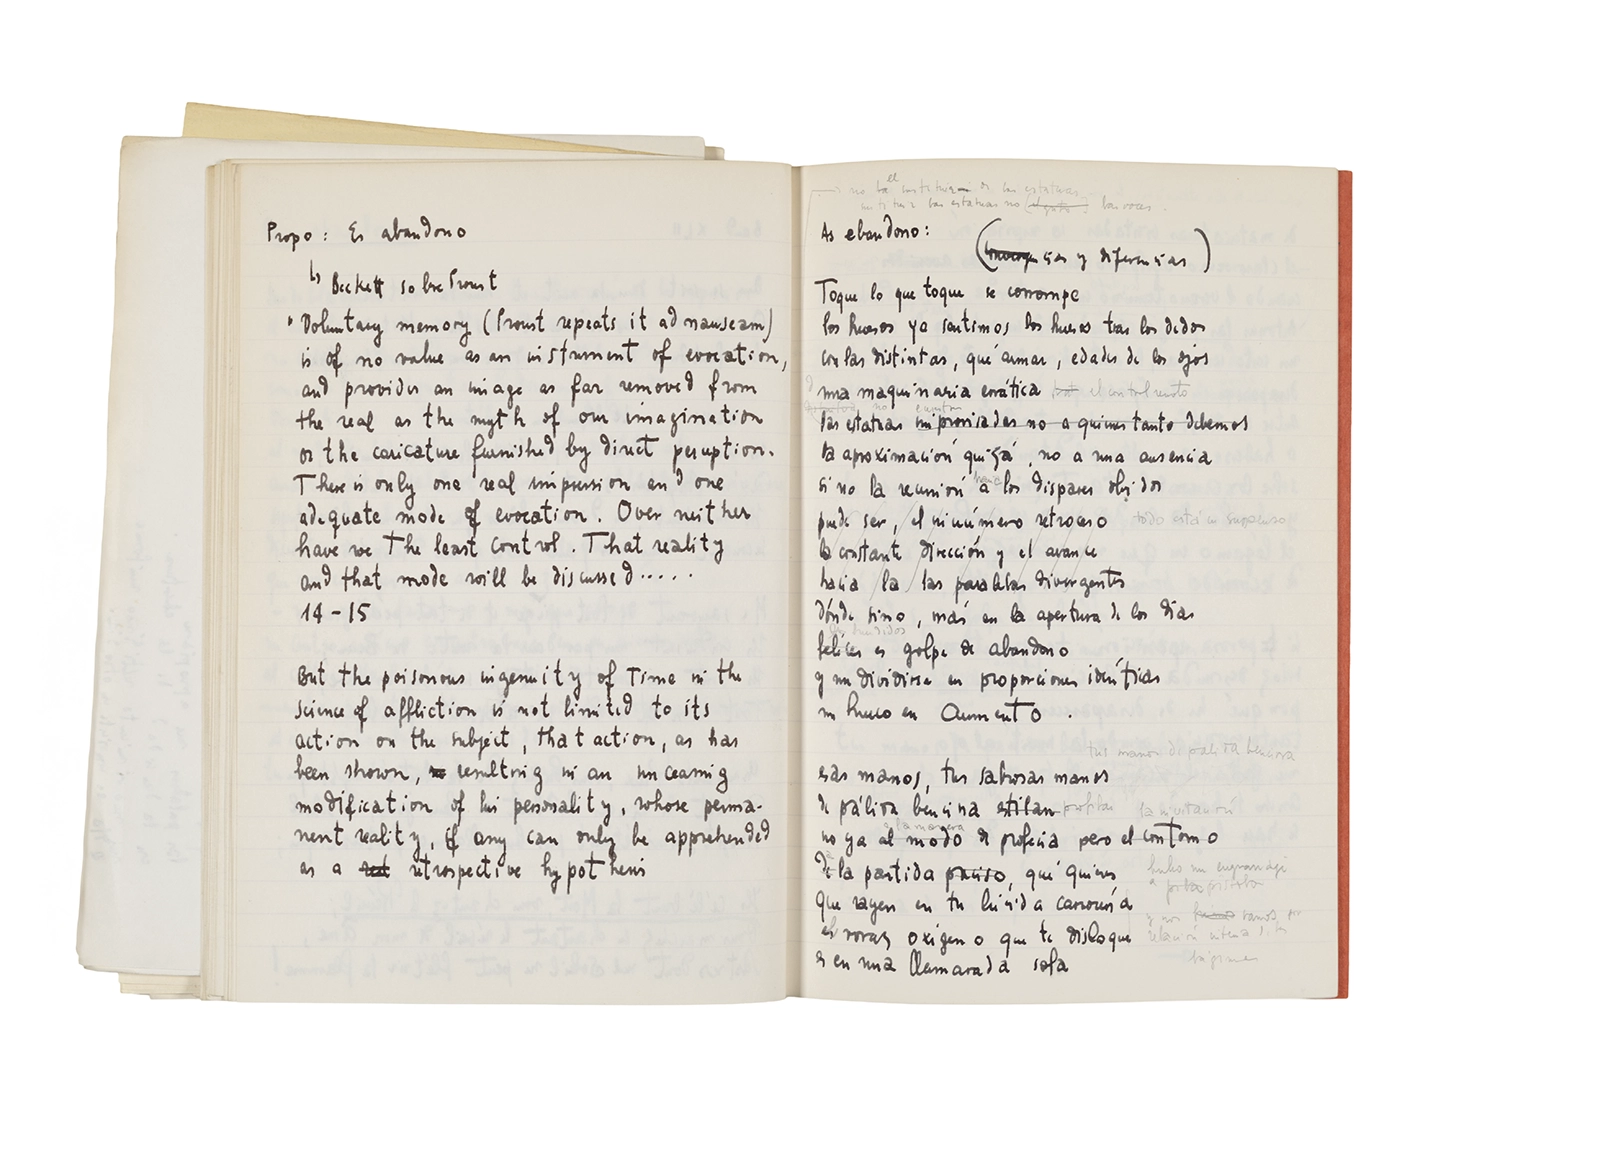 Propo: Es abandono
↳ Beckett sobre Proust
"Voluntary memory (Proust repeats it ad nauseam)
is of no value as an instrument of evocation,
and provides an image as far removed from
the real as the myth of our imagination
or the caricature furnished by direct perception.
There is only one real impression and one
adequate mode of evocation. Over neither
have we the least control. That reality
and that mode will be discussed.....
14-15
But the poisonous ingenuity of Time in the
science of affliction is not limited to its
action on the subject, that action, as has
been shown, resulting in an unceasing
modification of his personality, whose perma-
nent reality, if any can only be apprehended
as a ret retrospective hypothesis
no la el de las estatuas
las estatuas no barrocas.
As abandono:
(convergencias y diferencias)
Toque lo que toque se corrompe
los huesos ya sentimos los huesos tras los dedos
con las distintas, qué armar, edades de los ojos
una maquinaria errática el control remoto
las estatuas improvisadas no a quienes tanto debemos
la aproximación quizá, no a una ausencia
si no la reunión a los dispares olvidos
hacia
puede ser, el sinnúmero retroceso todo está en suspenso
la constante dirección y el avance
hacia la las paralelas divergentes
dónde sino, más en la apertura de los días
felices es golpe de abandono
y un dividirse en proporciones idénticas
un hueco en aumento.
tus manos de pálida bencina
esas manos, tus sabrosas manos
de pálida bencina estilan
no ya al modo de profecía pero el contorno
a la manera
de la partida preciso, qué quieres
que rayen en tu lúcida carrocería
el voraz oxígeno que te disloque
es en una llamarada sola